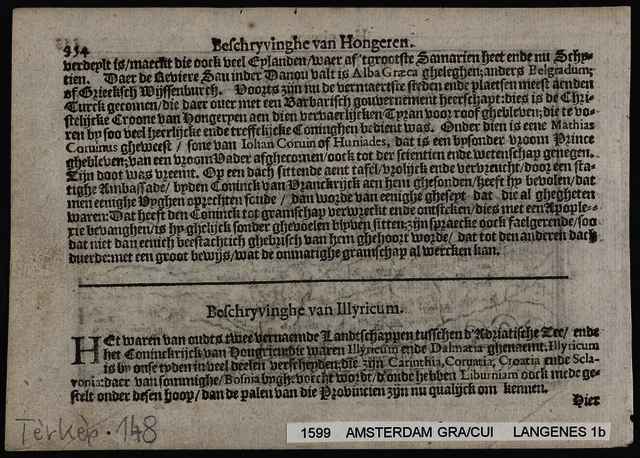 954
Beschryvinghe van Hongeren.
verdeylt is/ maeckt die oock veel Eylanden/ waer af 'tgrootste Samarien heet ende nu Schy-
tien. Daer de Reviere Sau inder Danou valt is Alba Græca gheleghen; anders Belgradum;
of Grieecksch Wijssenburch. Voorts zijn nu de vermaertste steden ende plaetsen meest aenden
Turck gecomen/ die daer over met een Barbarisch gouvernement heerschapt: dies is de Chri-
stelijcke Croone van Hongeryen aen dien vervaerlijcken Tyran voor roof ghebleven; die te vo-
ren by soo veel heerlijcke ende treffelijcke Coninghen bedient was. Onder dien is eene Mathias
Corvinus gheweest / sone van Iohan Corvin of Huniades, dat is een bysonder vroom Prince
ghebleven; van een vroom Vader afghecomen/ oock tot der scientien ende wetenschap genegen.
Zijn doot was vreemt. Op een dach sittende aent tafel/ vrolijck ende verheucht/ door een sta-
tighe Ambassade/ byden Coninck van Vranckrijck aen hem ghesonden/ heeft hy bevolen/ dat
men eenighe Vyghen oprechten soude / dan worde van eenighe gheseyt dat die al ghegheten
waren: Dat heeft den Coninck tot gramschap verweckt ende ontsteken/ dies met een Apople-
xie bevanghen/ is hy ghelijck sonder ghevoelen blyven sitten; zijn spraecke oock faelgerende/ soo
dat niet dan eenich beestachtich ghebrisch van hem ghehoort worde/ dat tot den anderen dach
duerde: met een groot bewijs/ wat de onmatighe gramschap al wercken kan.
Beschryvinghe van Illyricum.
HEt waren van oudts twee vernaemde Landtschappen tusschen d'Adriatische Zee/ ende
het Coninckrijck van Hongrien: die waren Illyricum ende Dalmatia ghenaemt. Illyricum
is by onse tyden in veel deelen verscheyden; die zijn Carinthia, Corvatia, Croatia ende Scla-
vonia: daer van sommighe/ Bosnia uygh. vorcht wordt/ d'onde hebben Liburniam oock mede ge-
stelt onder desen hoop/ dan de palen van die Provincien zijn nu qualijck om kennen.
Hier
Térkép. 148
1599 AMSTERDAM GRA/CUI LANGENES 1b